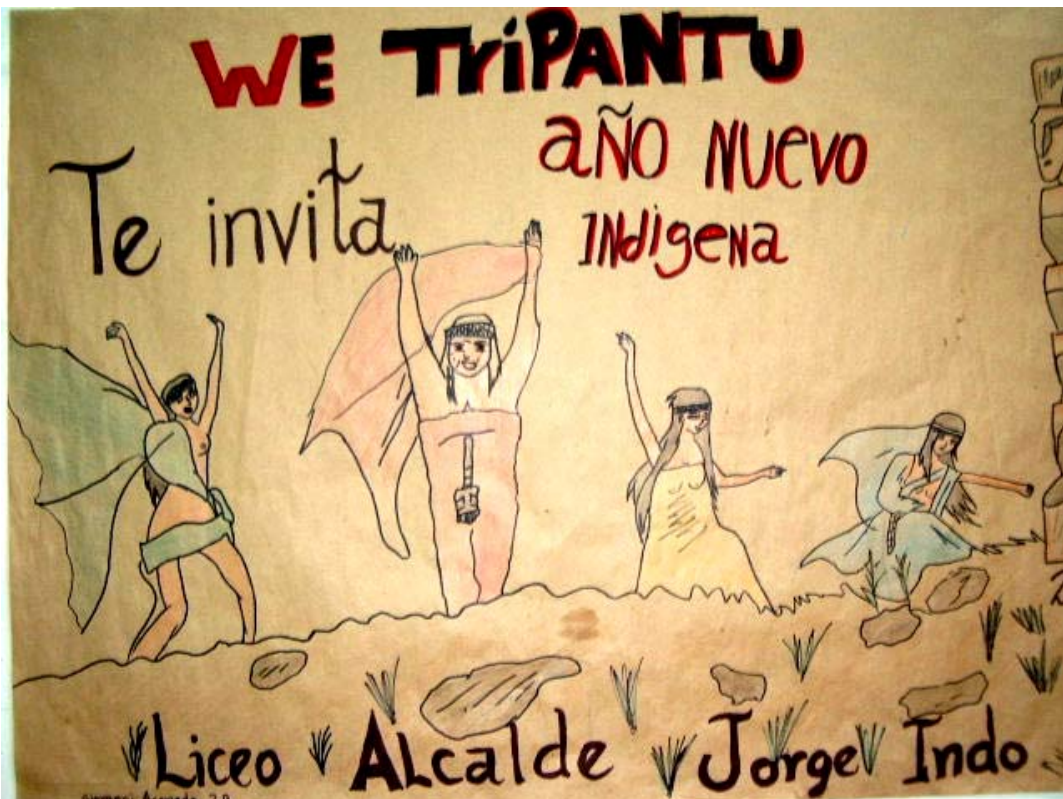 WE TriPANTU
Te invita
AÑO NUEVO
INdigeNa
Liceo ALcalde Jorge Indo